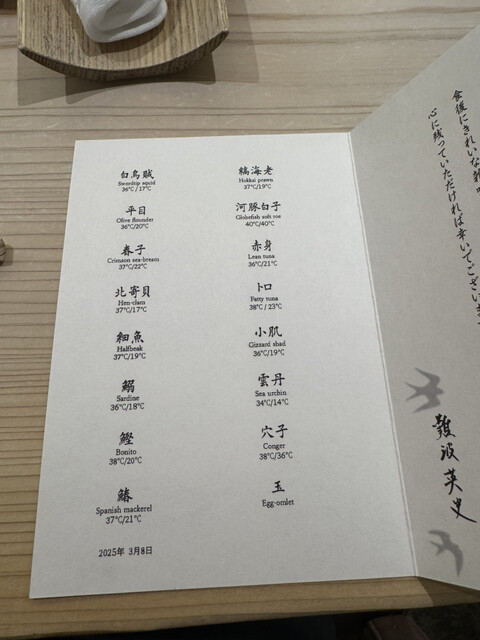 白烏賊
Swordtip squid
36°C / 17°C
平目
Olive flounder
36°C/20°C
春子
Crimson sea-bream
37°C/22°C
北寄貝
Hen-clam
37°C/17°C
細魚
Halfbeak
37°C/19°C
鰯
Sardine
36°C/18°C
鰹
Bonito
38°C/20°C
鰆
Spanish mackerel
37°C/21°C
2025年 3月8日
縞海老
Hokkai prawn
37°C/19°C
河豚白子
Globefish soft roe
40°C/40°C
赤身
Lean tuna
36°C/21°C
トロ
Fatty tuna
38°C / 23°C
小肌
Gizzard shad
36°C/19°C
雲丹
Sea urchin
34°C/14°C
穴子
Conger
38°C/36°C
玉
Egg-omlet
食後にきれいな
心に残っていただければ幸いでございます
難波英史